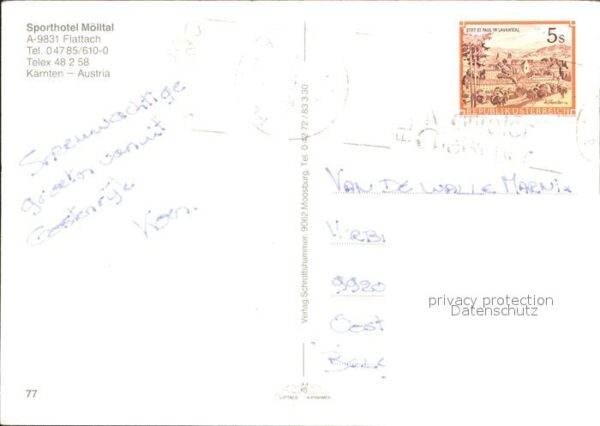 Sporthotel Mölltal
A-9831 Flattach
Tel. 0 47 85/610-0
Telex 48 2 58
Kärnten – Austria
STIFT ST. PAUL IM LAVANTTAL
5s
REPUBLIK ÖSTERREICH
groeten vanuit
Oostenrijk
Koen.
Verlag Schrottshammer, 9062 Moosburg, Tel. 0 42 72 / 83 3 30
VAN DE WALLE MARNIX
9920
privacy protection
Datenschutz
77